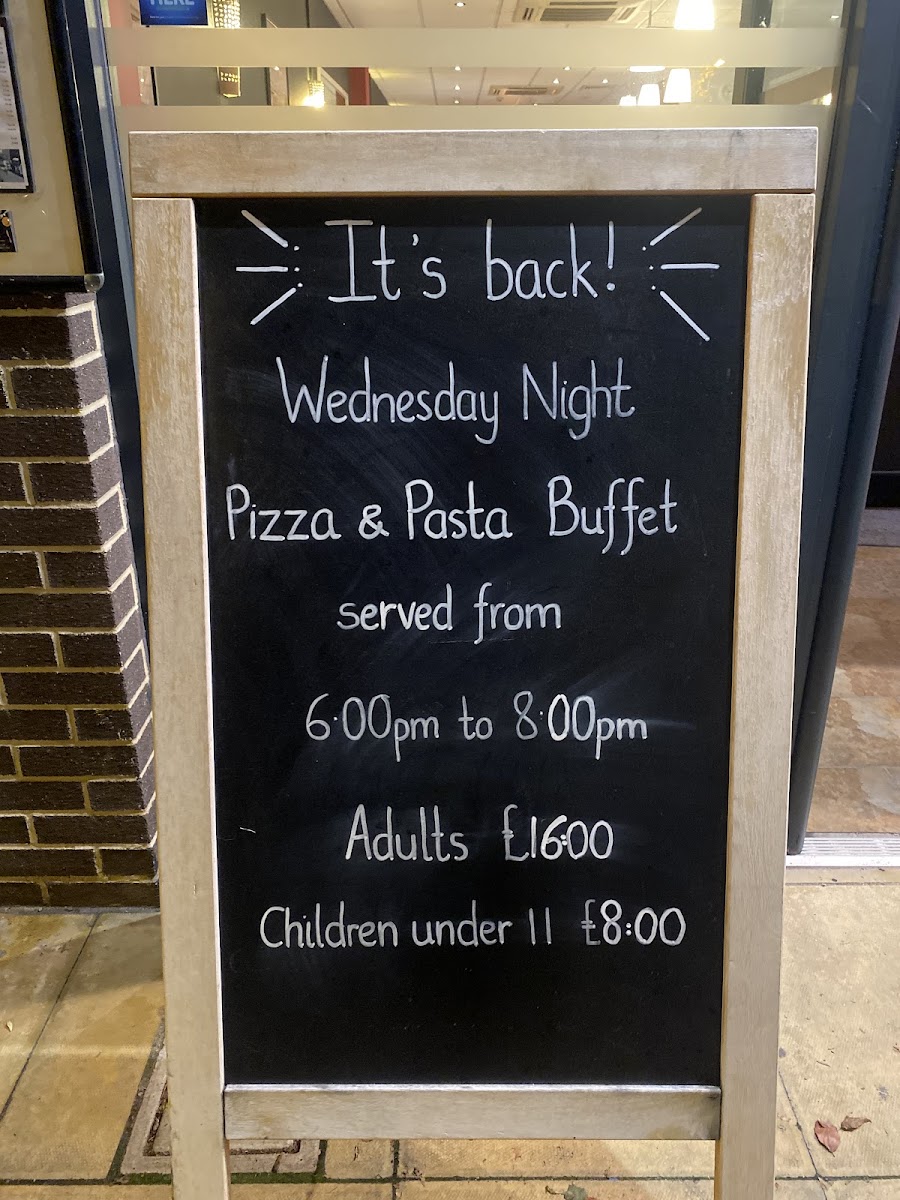 HERE
It's back!
Wednesday Night
Pizza & Pasta Buffet
served from
6:00pm to 8:00pm
Adults £16:00
Children under 11 £8:00